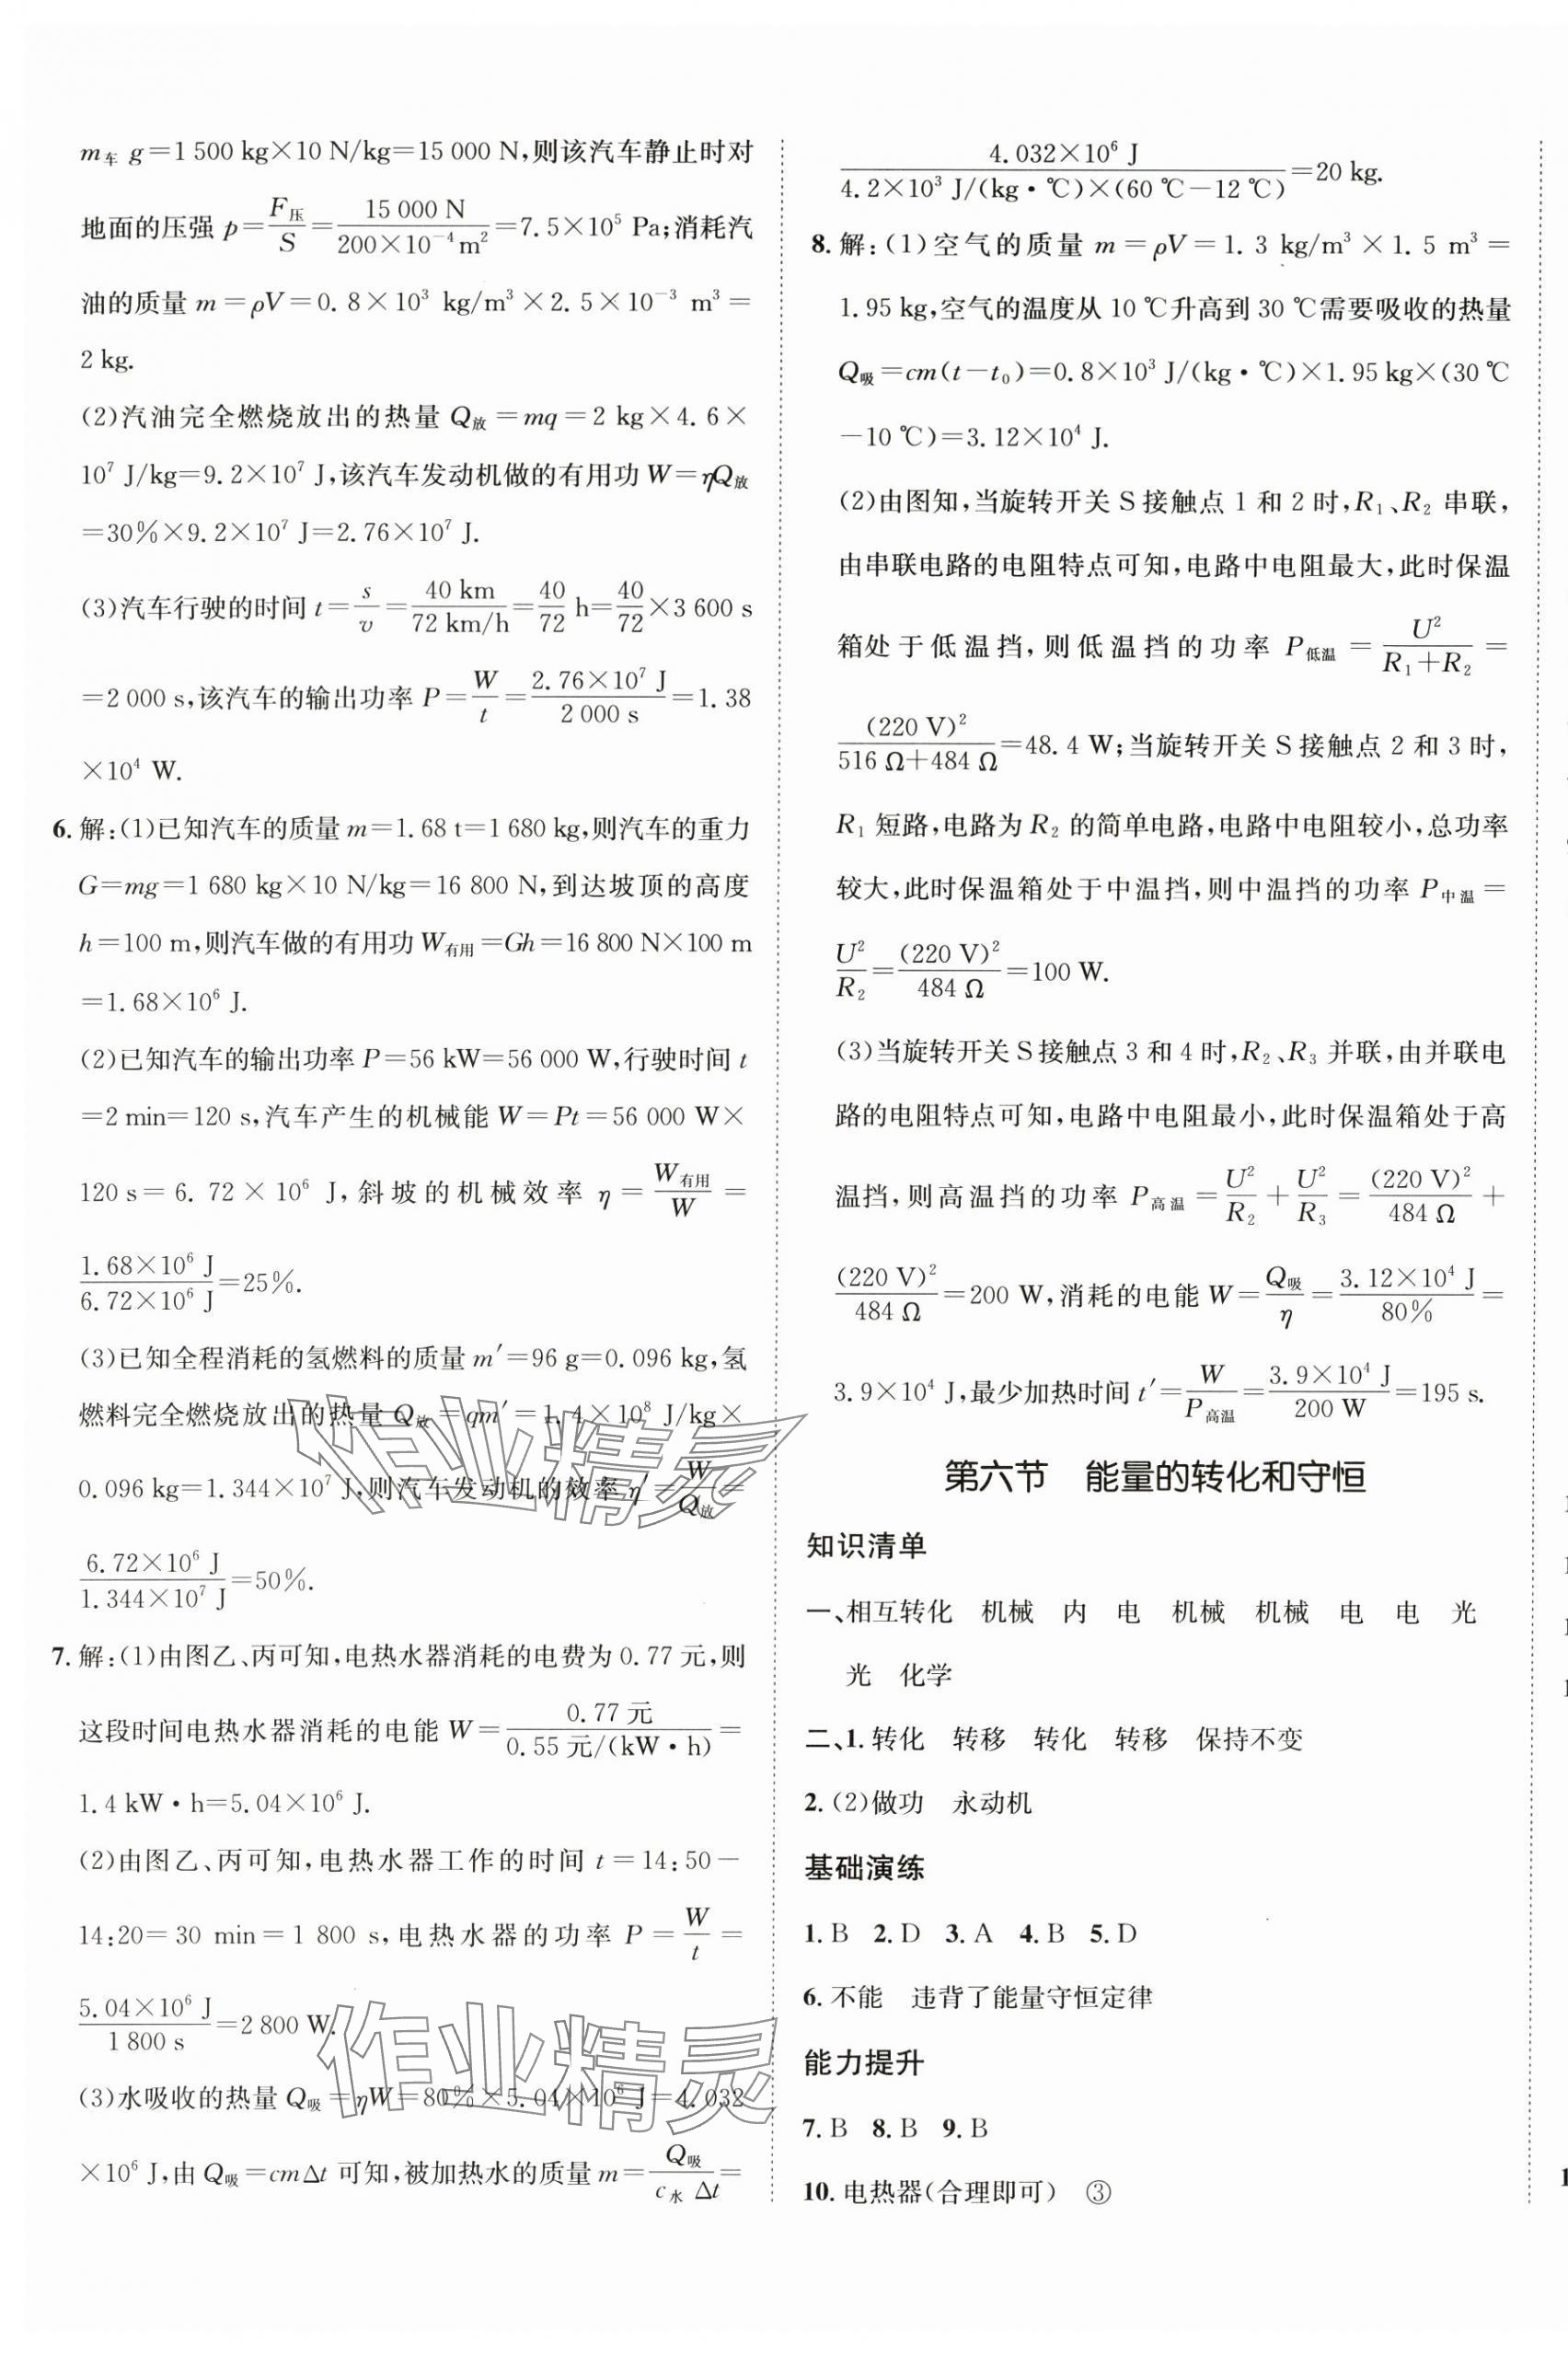 m车 g=1 500 kg×10 N/kg=15 000 N,则该汽车静止时对
地面的压强 p=F压/S=15 000 N/(200×10⁻⁴m²)=7.5×10⁵ Pa;消耗汽
油的质量 m=ρV=0.8×10³ kg/m³×2.5×10⁻³ m³=
2 kg.
(2)汽油完全燃烧放出的热量 Q放=mq=2 kg×4.6×
10⁷ J/kg=9.2×10⁷ J,该汽车发动机做的有用功 W=ηQ放
=30%×9.2×10⁷ J=2.76×10⁷ J.
(3)汽车行驶的时间 t=s/v=40 km/(72 km/h)=40/72 h=40/72×3 600 s
=2 000 s,该汽车的输出功率 P=W/t=2.76×10⁷ J/2 000 s=1.38
×10⁴ W.
6. 解:(1)已知汽车的质量 m=1.68 t=1 680 kg,则汽车的重力
G=mg=1 680 kg×10 N/kg=16 800 N,到达坡顶的高度
h=100 m,则汽车做的有用功 W有用=Gh=16 800 N×100 m
=1.68×10⁶ J.
(2)已知汽车的输出功率 P=56 kW=56 000 W,行驶时间 t
=2 min=120 s,汽车产生的机械能 W=Pt=56 000 W×
120 s=6.72×10⁶ J,斜坡的机械效率 η=W有用/W=
1.68×10⁶ J/6.72×10⁶ J=25%.
(3)已知全程消耗的氢燃料的质量 m′=96 g=0.096 kg,氢
燃料完全燃烧放出的热量 Q放=qm′=1.4×10⁸ J/kg×
0.096 kg=1.344×10⁷ J,则汽车发动机的效率 η′=W/Q放=
6.72×10⁶ J/1.344×10⁷ J=50%.
7. 解:(1)由图乙、丙可知,电热水器消耗的电费为 0.77 元,则
这段时间电热水器消耗的电能 W=0.77 元/(0.55 元/(kW·h))=
1.4 kW·h=5.04×10⁶ J.
(2)由图乙、丙可知,电热水器工作的时间 t=14:50-
14:20=30 min=1 800 s,电热水器的功率 P=W/t=
5.04×10⁶ J/1 800 s=2 800 W.
(3)水吸收的热量 Q吸=ηW=80%×5.04×10⁶ J=4.032
×10⁶ J,由 Q吸=cmΔt 可知,被加热水的质量 m=Q吸/(c水 Δt)=
4.032×10⁶ J/(4.2×10³ J/(kg·℃)×(60 ℃-12 ℃))=20 kg.
8. 解:(1)空气的质量 m=ρV=1.3 kg/m³×1.5 m³=
1.95 kg,空气的温度从 10 ℃升高到 30 ℃需要吸收的热量
Q吸=cm(t-t₀)=0.8×10³ J/(kg·℃)×1.95 kg×(30 ℃
-10 ℃)=3.12×10⁴ J.
(2)由图知,当旋转开关 S 接触点 1 和 2 时,R₁、R₂ 串联,
由串联电路的电阻特点可知,电路中电阻最大,此时保温
箱处于低温挡,则低温挡的功率 P低温=U²/(R₁+R₂)=
(220 V)²/(516 Ω+484 Ω)=48.4 W;当旋转开关 S 接触点 2 和 3 时,
R₁ 短路,电路为 R₂ 的简单电路,电路中电阻较小,总功率
较大,此时保温箱处于中温挡,则中温挡的功率 P中温=
U²/R₂=(220 V)²/484 Ω=100 W.
(3)当旋转开关 S 接触点 3 和 4 时,R₂、R₃ 并联,由并联电
路的电阻特点可知,电路中电阻最小,此时保温箱处于高
温挡,则高温挡的功率 P高温=U²/R₂+U²/R₃=(220 V)²/484 Ω+
(220 V)²/484 Ω=200 W,消耗的电能 W=Q吸/η=3.12×10⁴ J/80%=
3.9×10⁴ J,最少加热时间 t′=W/P高温=3.9×10⁴ J/200 W=195 s.
第六节 能量的转化和守恒
知识清单
一、相互转化 机械 内 电 机械 机械 电 电 光
光 化学
二、1. 转化 转移 转化 转移 保持不变
2. (2)做功 永动机
基础演练
1. B 2. D 3. A 4. B 5. D
6. 不能 违背了能量守恒定律
能力提升
7. B 8. B 9. B
10. 电热器(合理即可) ③
作业精灵
作业精灵